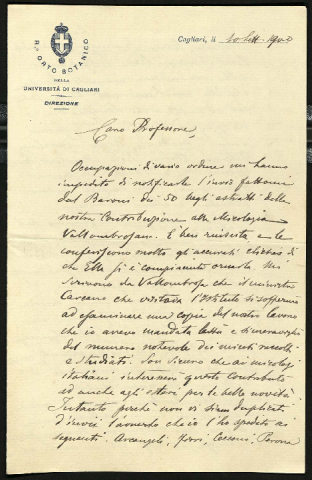 R.º ORTO BOTANICO
DELLA
UNIVERSITÀ DI CAGLIARI
DIREZIONE
Cagliari, li 10 Sett. 1900
Caro Professore,
Occupazioni di vario ordine mi hanno
impedito di notificarle l'invio fattomi
dal Baroni dei 50 degli estratti della
nostra Contribuzione alla Micologia
Vallombrosana. È ben riuscita e le
conferiscono molto gli accurati clichés di
che Ella si è compiaciuto ornarla. Mi
scrivono da Vallombrosa che il ministro
Carcano che visitava l'Istituto si soffermò
ad esaminare una copia del nostro lavoro
che io avevo mandata colà e si meravigliò
del numero notevole dei miceti raccolti
e studiati. Son sicuro che ai micologi
italiani interesserà questo contributo
ed anche agli esteri per le belle novità.
Intanto perchè non vi siano duplicati
d'invii l'avverto che io l'ho spedito ai
seguenti. Arcangeli, Cocconi, Penzig